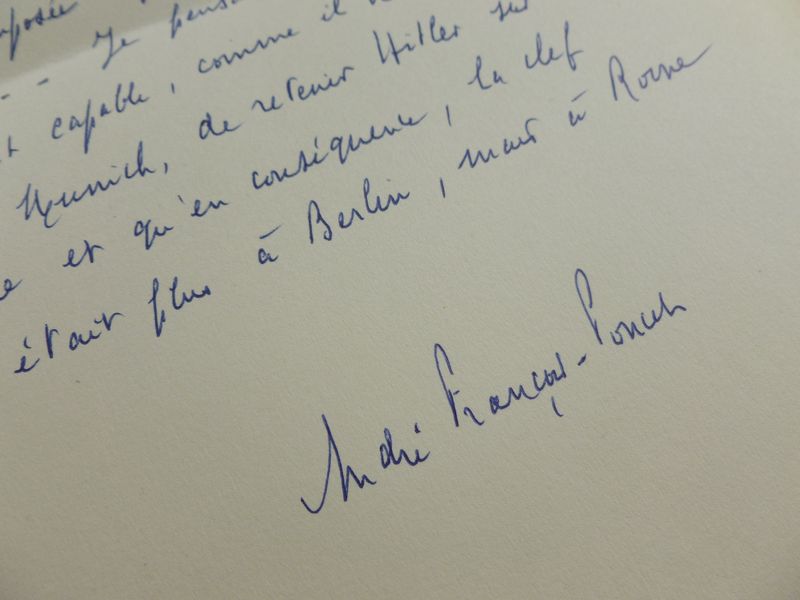 mposée
Je pensa
capable, comme il
Munich, de retenir Hitler sur
e et qu'en conséquence, la clef
était plus à Berlin, mais à Rome
André François-Poncet